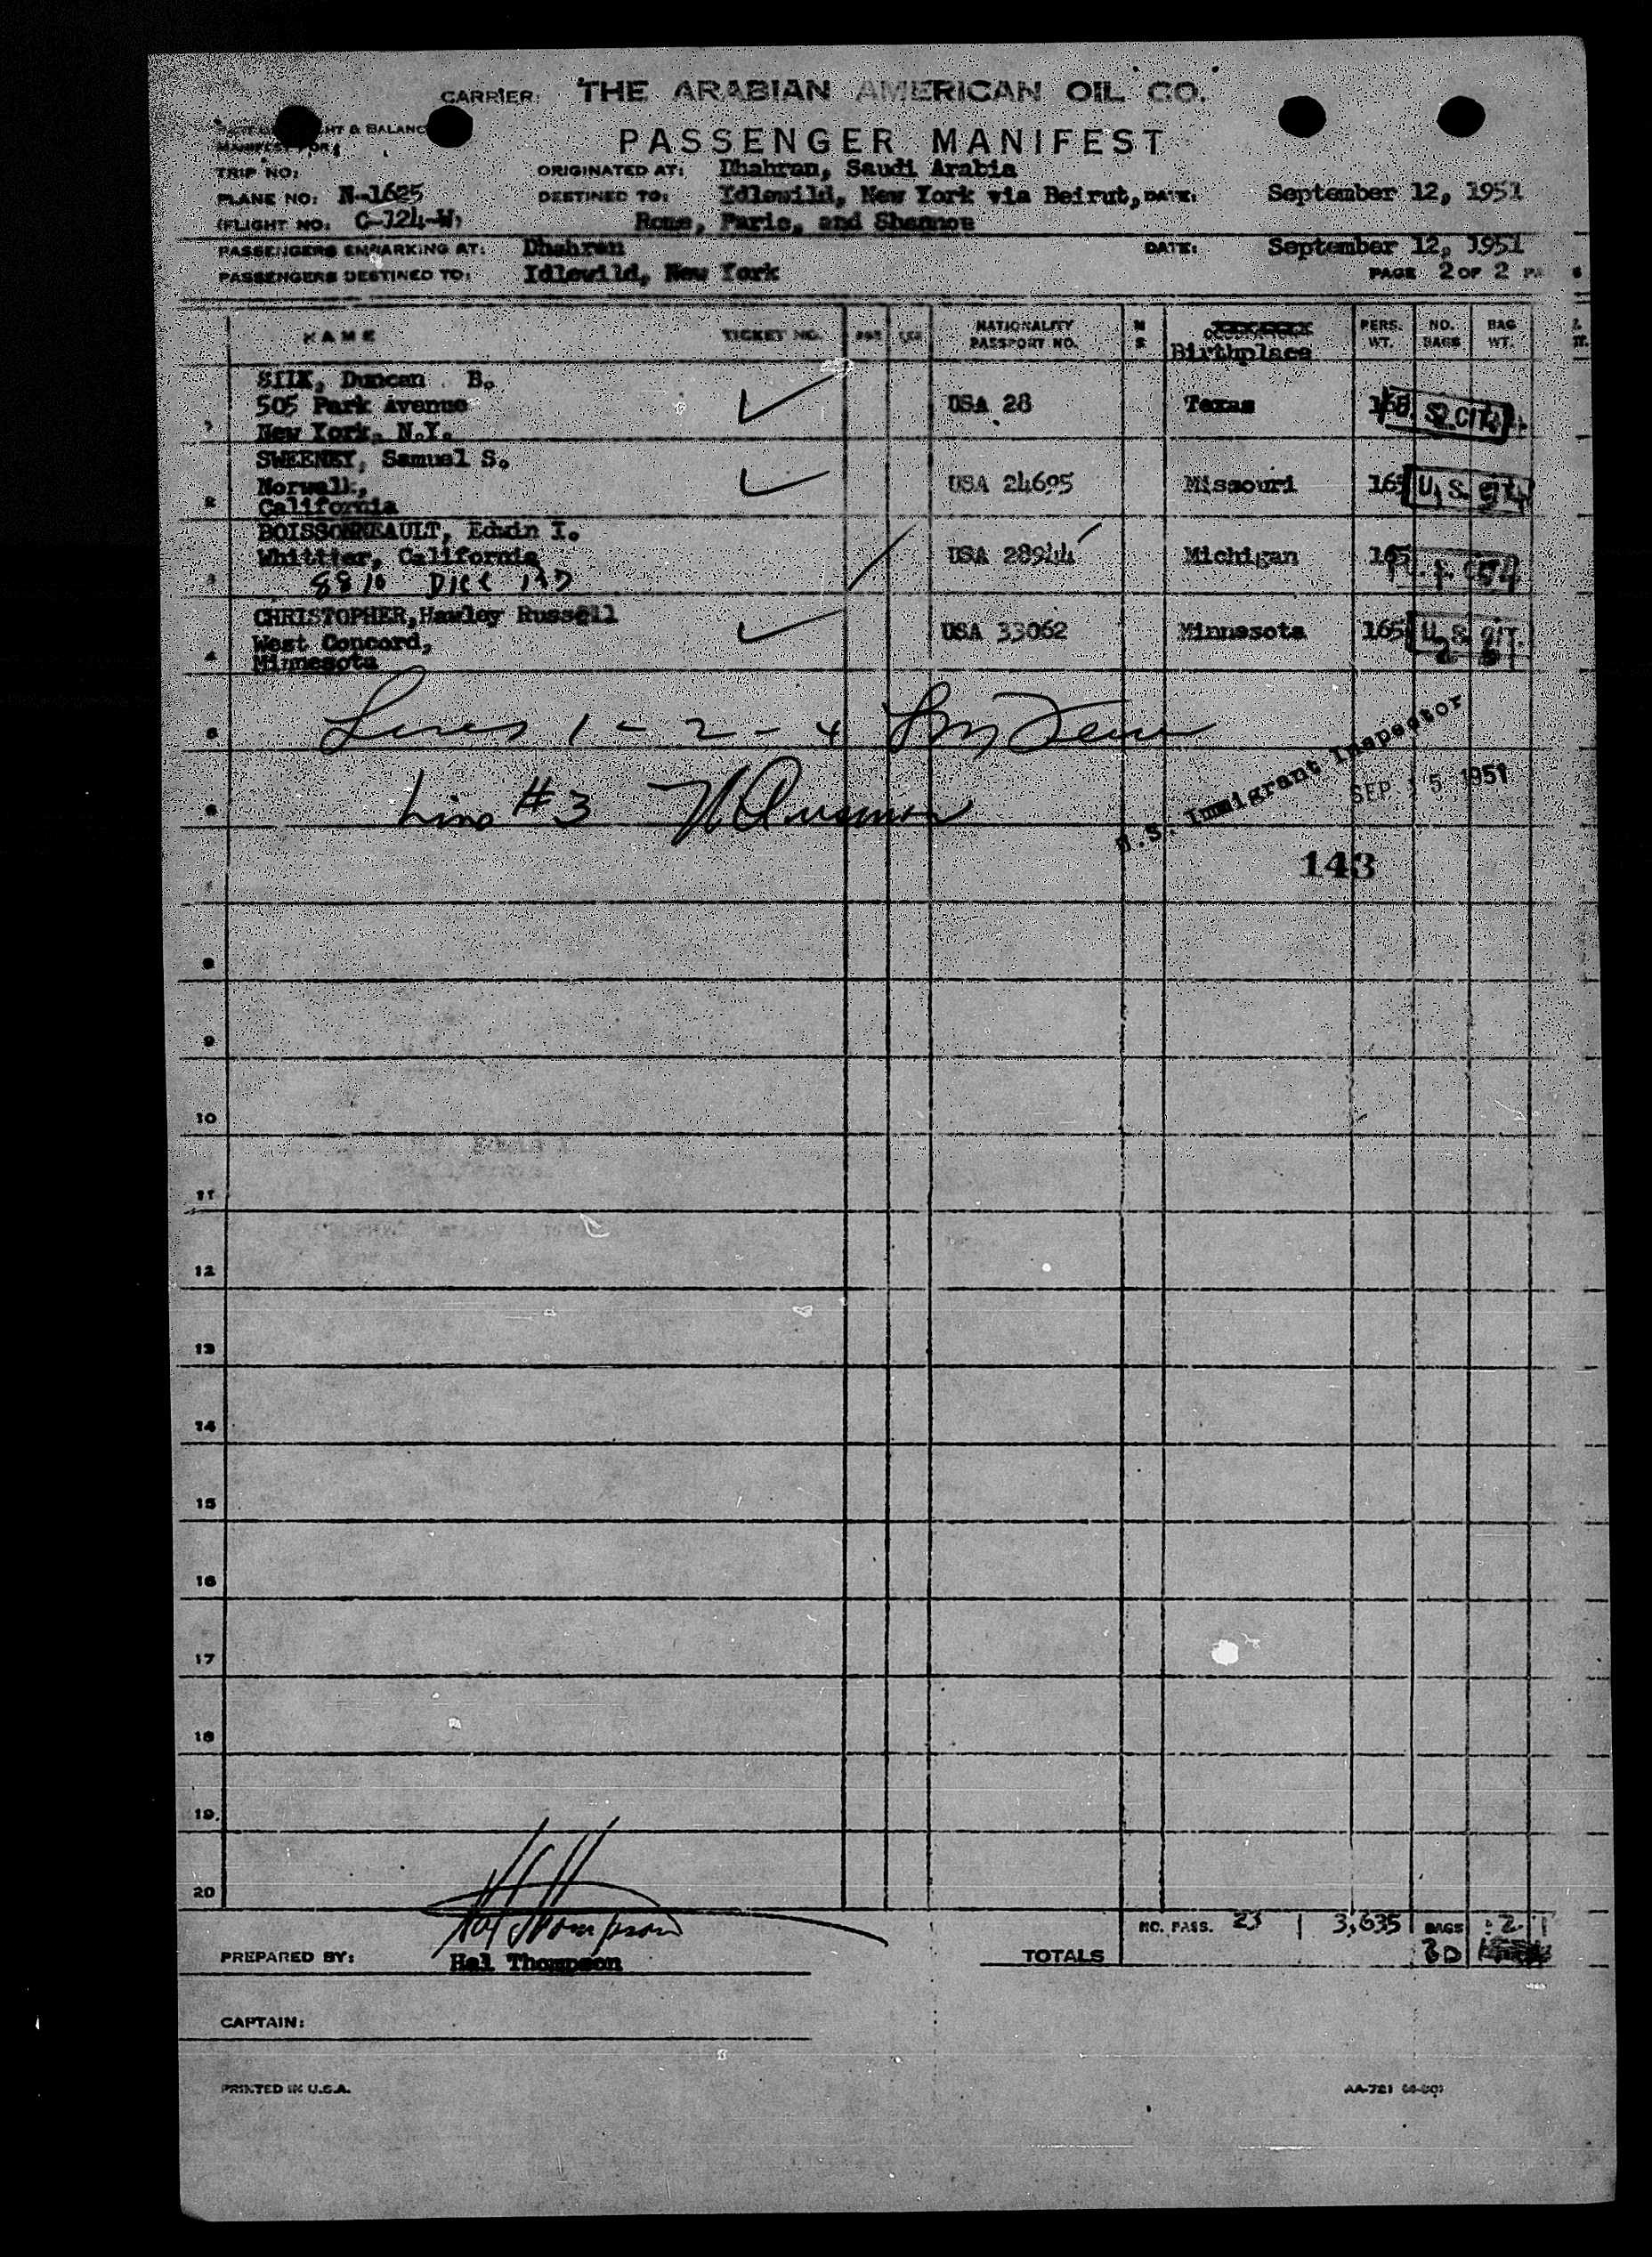 CARRIER: THE ARABIAN AMERICAN OIL CO.
PASSENGER MANIFEST
HT & BALANC
TRIP NO:
ORIGINATED AT: Dhahran, Saudi Arabia
PLANE NO: N-1625
DESTINED TO: Idlewild, New York via Beirut, DATE: September 12, 1951
(FLIGHT NO. C-124-W)
Rome, Paris, and Shannon
PASSENGERS EMBARKING AT: Dhahran DATE: September 12, 1951
PASSENGERS DESTINED TO: Idlewild, New York PAGE 2 OF 2
NAME TICKET NO. NATIONALITY PASSPORT NO. M S Birthplace PERS. WT. NO. BAGS BAG WT.
SILK, Duncan B.
505 Park Avenue USA 28 Texas
1 New York, N.Y.
SWEENEY, Samuel S.
Norwalk, USA 24695 Missouri 165 U.S. CIT.
2 California
BOISSONNEAULT, Edwin I.
Whittier, California USA 28944 Michigan 165
3 8810
CHRISTOPHER, Hawley Russell
West Concord, USA 33062 Minnesota 165 U.S. CIT.
4 Minnesota
5 Lines 1 - 2 - 4
6 Line #3
U.S. Immigrant Inspector
SEP 15 1951
143
7
8
9
10
11
12
13
14
15
16
17
18
19
20
NO. PASS. 23 3,635 BAGS
TOTALS
Hal Thompson
PREPARED BY: Hal Thompson
CAPTAIN:
PRINTED IN U.S.A. AA-721